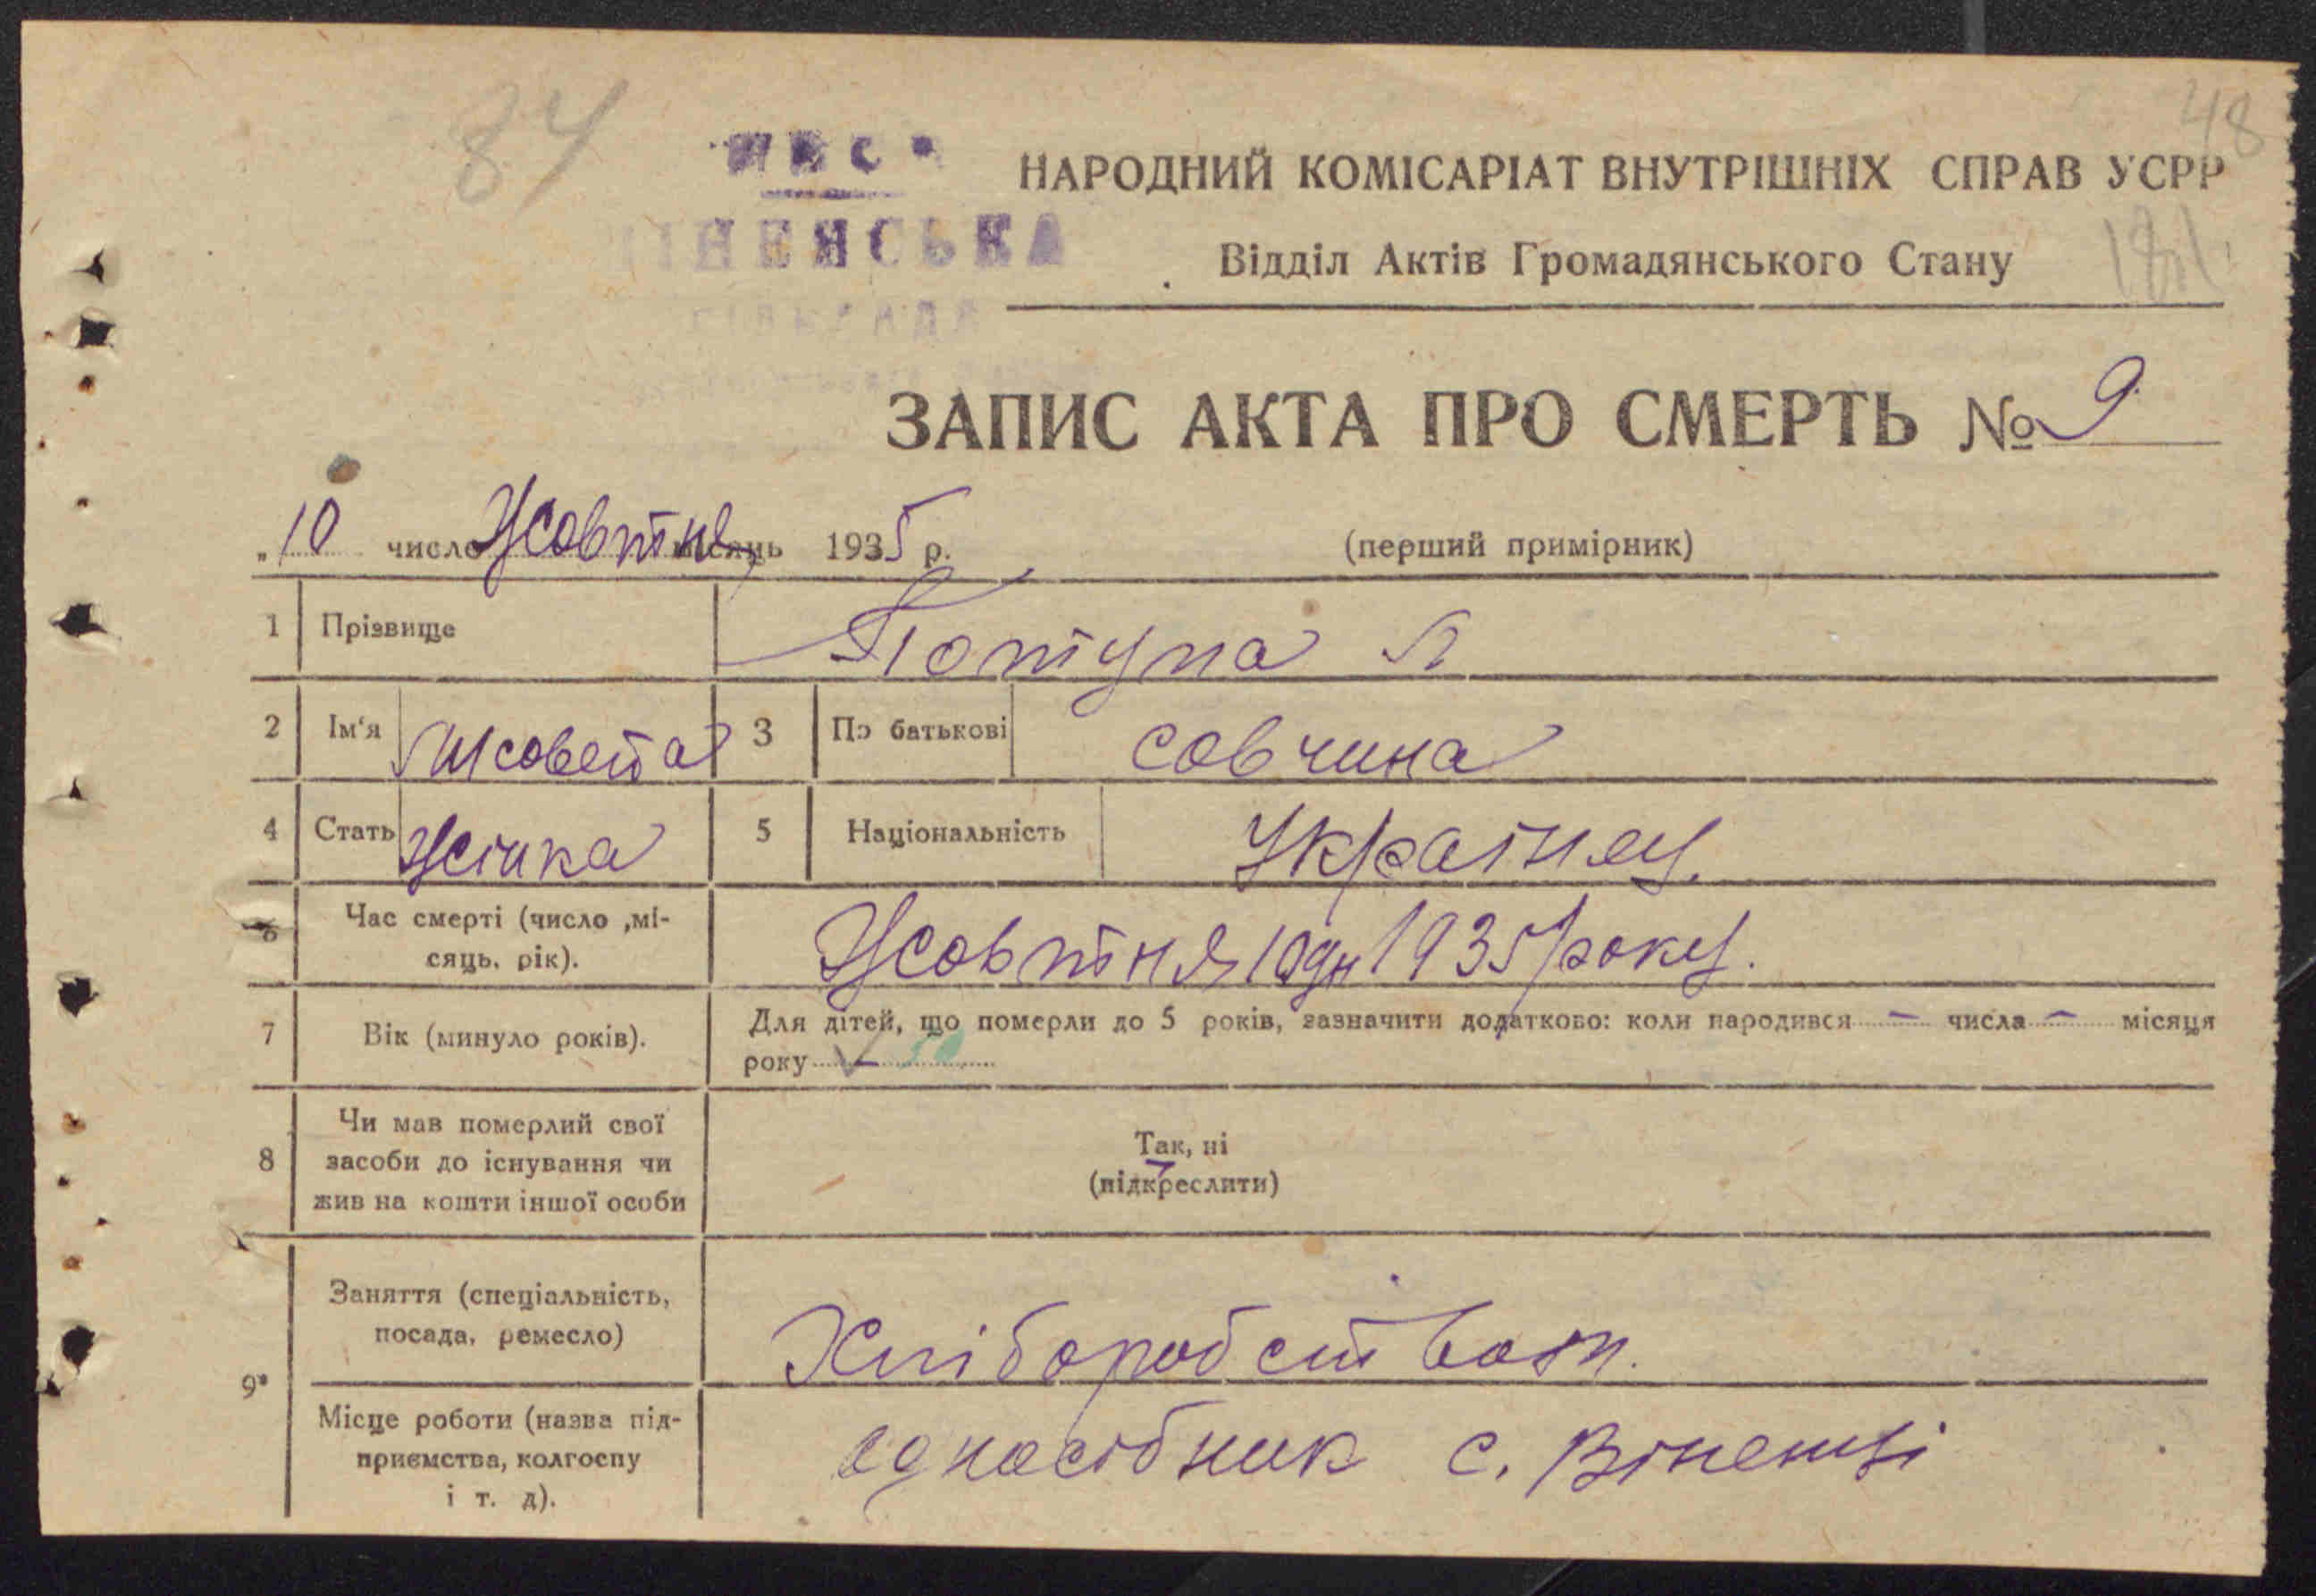 84
48
НАРОДНИЙ КОМІСАРІАТ ВНУТРІШНІХ СПРАВ УСРР
Відділ Актів Громадянського Стану
ЗАПИС АКТА ПРО СМЕРТЬ № 9
„10 число Жовтня місяць 1935 р. (перший примірник)
1 Прізвище Потупа Л
2 Ім'я Лисовета 3 По батькові Совчина
4 Стать Жінка 5 Національність Україец.
6 Час смерті (число ,мі-
сяць, рік). Жовтня 10дн 1935 року.
7 Вік (минуло років). Для дітей, що померли до 5 років, зазначити додатково: коли народився – числа – місяця
року – 50
8 Чи мав померлий свої
засоби до існування чи
жив на кошти іншої особи
Так, ні
(підкреслити)
9* Заняття (спеціальність,
посада, ремесло) Хліборобством.
Місце роботи (назва під-
приємства, колгоспу
і т. д).
едносібник с. Віненці